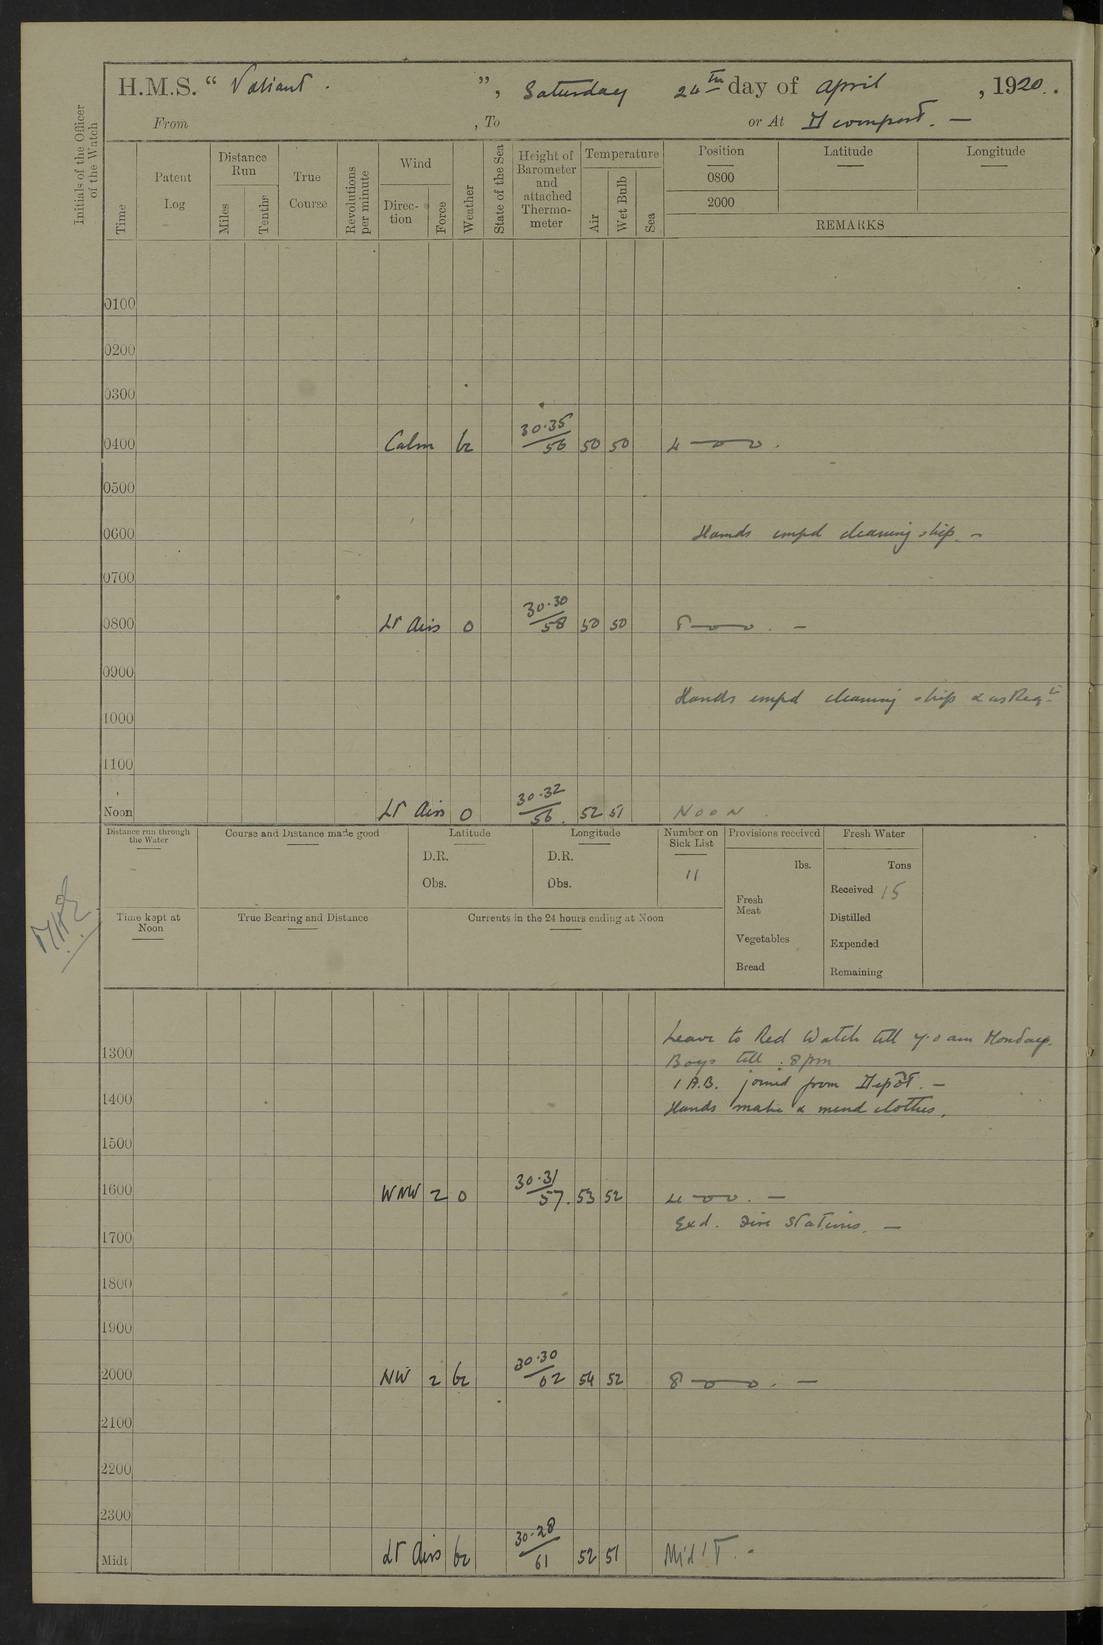 H.M.S. "Valiant.", Saturday 24th day of April, 1920.
From , To or At Devonport. —
Initials of the Officer of the Watch
Time
Patent Log
Distance Run
Miles
Tenths
True Course
Revolutions per minute
Wind
Direc-tion
Force
Weather
State of the Sea
Height of Barometer and attached Thermo-meter
Temperature
Air
Wet Bulb
Sea
Position Latitude Longitude
0800
2000
REMARKS
0100
0200
0300
0400 Calm bc 30.35/56 50 50 4 — 0 — 0 .
0500
0600 Hands empd cleaning ship. —
0700
0800 Lt Airs 0 30.30/58 50 50 8 — 0 — 0 . —
0900
Hands empd cleaning ship & as Reqte
1000
1100
Noon Lt Airs 0 30.32/56. 52 51 NOON
Distance run through the Water
Course and Distance made good
Latitude
D.R.
Obs.
Longitude
D.R.
Obs.
Number on Sick List
11
Provisions received
lbs.
Fresh Meat
Vegetables
Bread
Fresh Water
Tons
Received 15
Distilled
Expended
Remaining
Time kept at Noon
True Bearing and Distance
Currents in the 24 hours ending at Noon
Leave to Red Watch till 7.0 am Monday.
1300 Boys till 8 pm
1 A.B. joined from Depôt. —
1400 Hands make & mend clothes.
1500
1600 WNW 2 0 30.31/57. 53 52 4 — 0 — 0 . —
Exd. Fire Stations. —
1700
1800
1900
2000 NW 2 bc 30.30/62 54 52 8 — 0 — 0 . —
2100
2200
2300
Midt Lt Airs bc 30.28/61 52 51 Mid'T. -